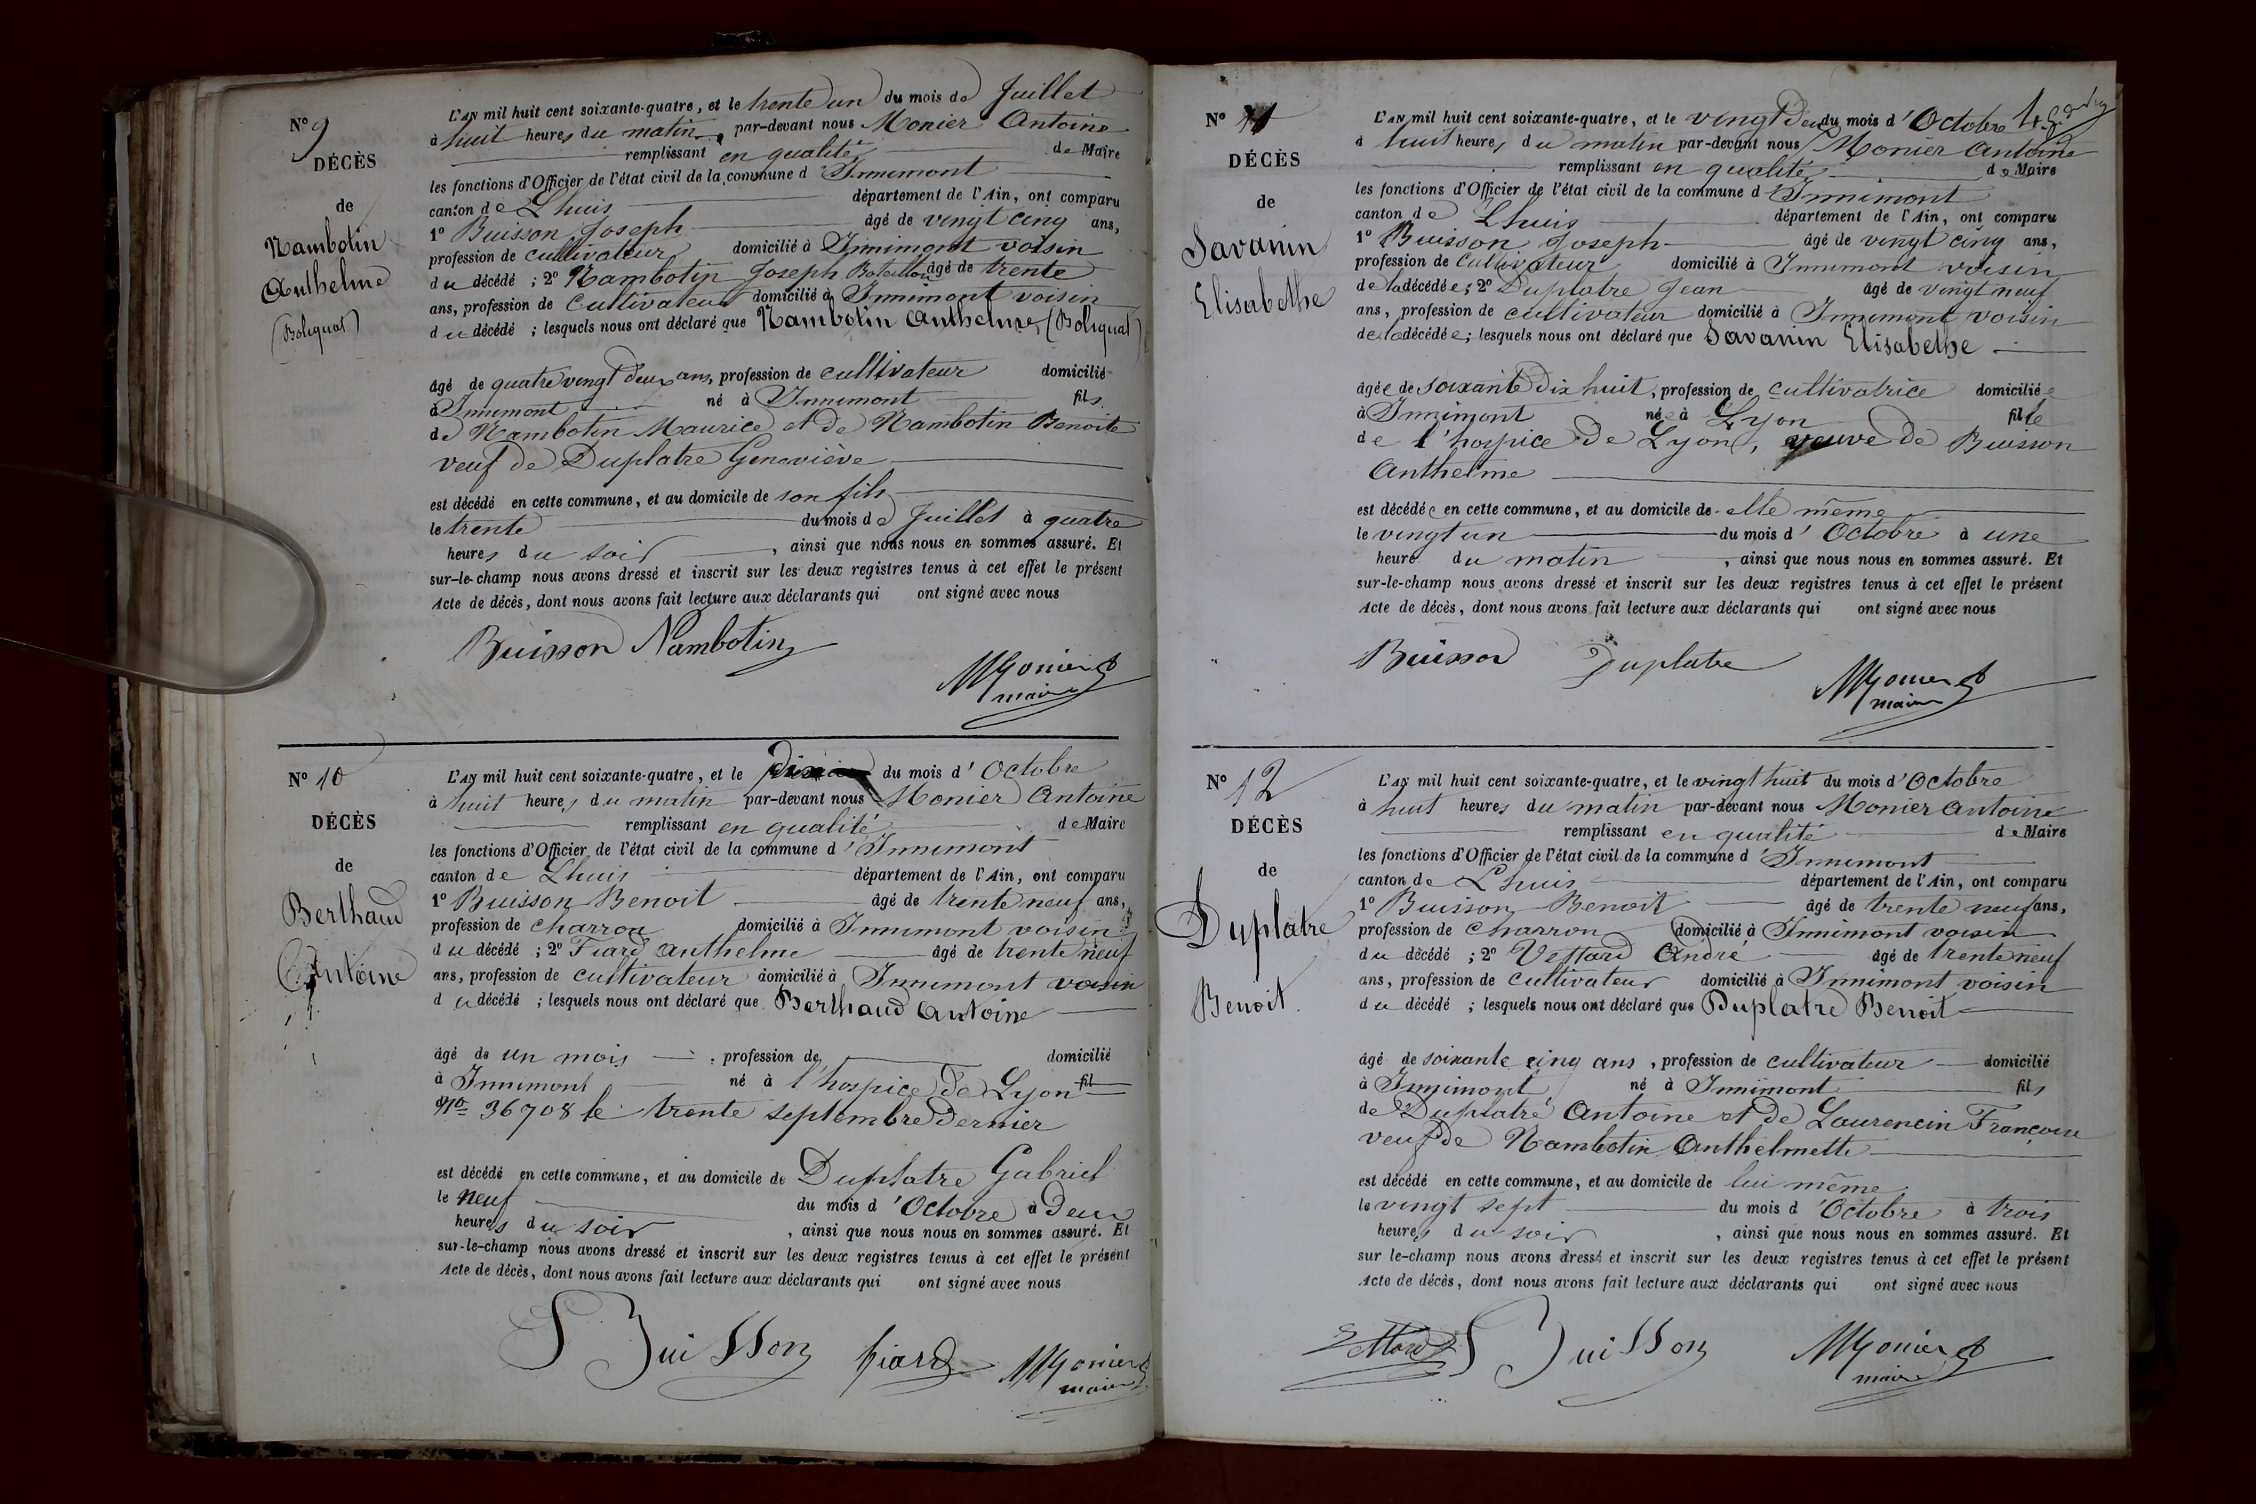 N° 9
DÉCÈS
de
Nambotin
Anthelme
(Boliquat)
L'AN mil huit cent soixante-quatre, et le trente un du mois de Juillet
à huit heures du matin, par-devant nous Monier Antoine
remplissant en qualité de Maire
les fonctions d'Officier de l'état civil de la commune d'Innimont
canton de Lhuis département de l'Ain, ont comparu
1° Buisson Joseph âgé de vingt cinq ans,
profession de cultivateur domicilié à Innimont voisin
du décédé ; 2° Nambotin Joseph âgé de trente
ans, profession de cultivateur domicilié à Innimont voisin
du décédé ; lesquels nous ont déclaré que Nambotin Anthelme (Boliquat)
âgé de quatre vingt deux ans, profession de cultivateur domicilié
à Innimont né à Innimont fils
de Nambotin Maurice et de Nambotin Benoite
veuf de Duplatre Geneviève
est décédé en cette commune, et au domicile de son fils
le trente du mois de Juillet à quatre
heures du soir, ainsi que nous nous en sommes assuré. Et
sur-le-champ nous avons dressé et inscrit sur les deux registres tenus à cet effet le présent
Acte de décès, dont nous avons fait lecture aux déclarants qui ont signé avec nous
Buisson Nambotin
Monier
maire
N° 10
DÉCÈS
de
Berthaud
Antoine
L'AN mil huit cent soixante-quatre, et le dix du mois d'Octobre
à huit heures du matin par-devant nous Monier Antoine
remplissant en qualité de Maire
les fonctions d'Officier de l'état civil de la commune d'Innimont
canton de Lhuis département de l'Ain, ont comparu
1° Buisson Benoit âgé de trente neuf ans,
profession de charron domicilié à Innimont voisin
du décédé ; 2° Fiard Anthelme âgé de trente neuf
ans, profession de cultivateur domicilié à Innimont voisin
du décédé ; lesquels nous ont déclaré que Berthaud Antoine
âgé de un mois, profession de domicilié
à Innimont né à l'hospice de Lyon fil
N° 36708 le trente septembre dernier
est décédé en cette commune, et au domicile de Duplatre Gabriel
le neuf du mois d'Octobre à deux
heures du soir, ainsi que nous nous en sommes assuré. Et
sur-le-champ nous avons dressé et inscrit sur les deux registres tenus à cet effet le présent
Acte de décès, dont nous avons fait lecture aux déclarants qui ont signé avec nous
Buisson fiard Monier
maire
N° 11
DÉCÈS
de
Savanin
Elisabethe
L'AN mil huit cent soixante-quatre, et le vingt deux du mois d'Octobre
à huit heures du matin par-devant nous Monier Antoine
remplissant en qualité de Maire
les fonctions d'Officier de l'état civil de la commune d'Innimont
canton de Lhuis département de l'Ain, ont comparu
1° Buisson Joseph âgé de vingt cinq ans,
profession de cultivateur domicilié à Innimont voisin
de la décédée ; 2° Duplatre Jean âgé de vingt neuf
ans, profession de cultivateur domicilié à Innimont voisin
de la décédée ; lesquels nous ont déclaré que Savanin Elisabethe
âgée de soixante dix huit, profession de cultivatrice domiciliée
à Innimont née à Lyon fille
de l'hospice de Lyon, veuve de Buisson
Anthelme
est décédée en cette commune, et au domicile de elle même
le vingt un du mois d'Octobre à une
heure du matin, ainsi que nous nous en sommes assuré. Et
sur-le-champ nous avons dressé et inscrit sur les deux registres tenus à cet effet le présent
Acte de décès, dont nous avons fait lecture aux déclarants qui ont signé avec nous
Buisson Duplatre Monier
maire
N° 12
DÉCÈS
de
Duplatre
Benoit
L'AN mil huit cent soixante-quatre, et le vingt huit du mois d'Octobre
à huit heures du matin par-devant nous Monier Antoine
remplissant en qualité de Maire
les fonctions d'Officier de l'état civil de la commune d'Innimont
canton de Lhuis département de l'Ain, ont comparu
1° Buisson Benoit âgé de trente neuf ans,
profession de charron domicilié à Innimont voisin
du décédé ; 2° Vettard André âgé de trente neuf
ans, profession de cultivateur domicilié à Innimont voisin
du décédé ; lesquels nous ont déclaré que Duplatre Benoit
âgé de soixante cinq ans, profession de cultivateur domicilié
à Innimont né à Innimont fils
de Duplatre Antoine et de Laurencin Françoise
veuf de Nambotin Anthelmette
est décédé en cette commune, et au domicile de lui même
le vingt sept du mois d'Octobre à trois
heures du soir, ainsi que nous nous en sommes assuré. Et
sur le-champ nous avons dressé et inscrit sur les deux registres tenus à cet effet le présent
Acte de décès, dont nous avons fait lecture aux déclarants qui ont signé avec nous
Vettard Buisson Monier
maire